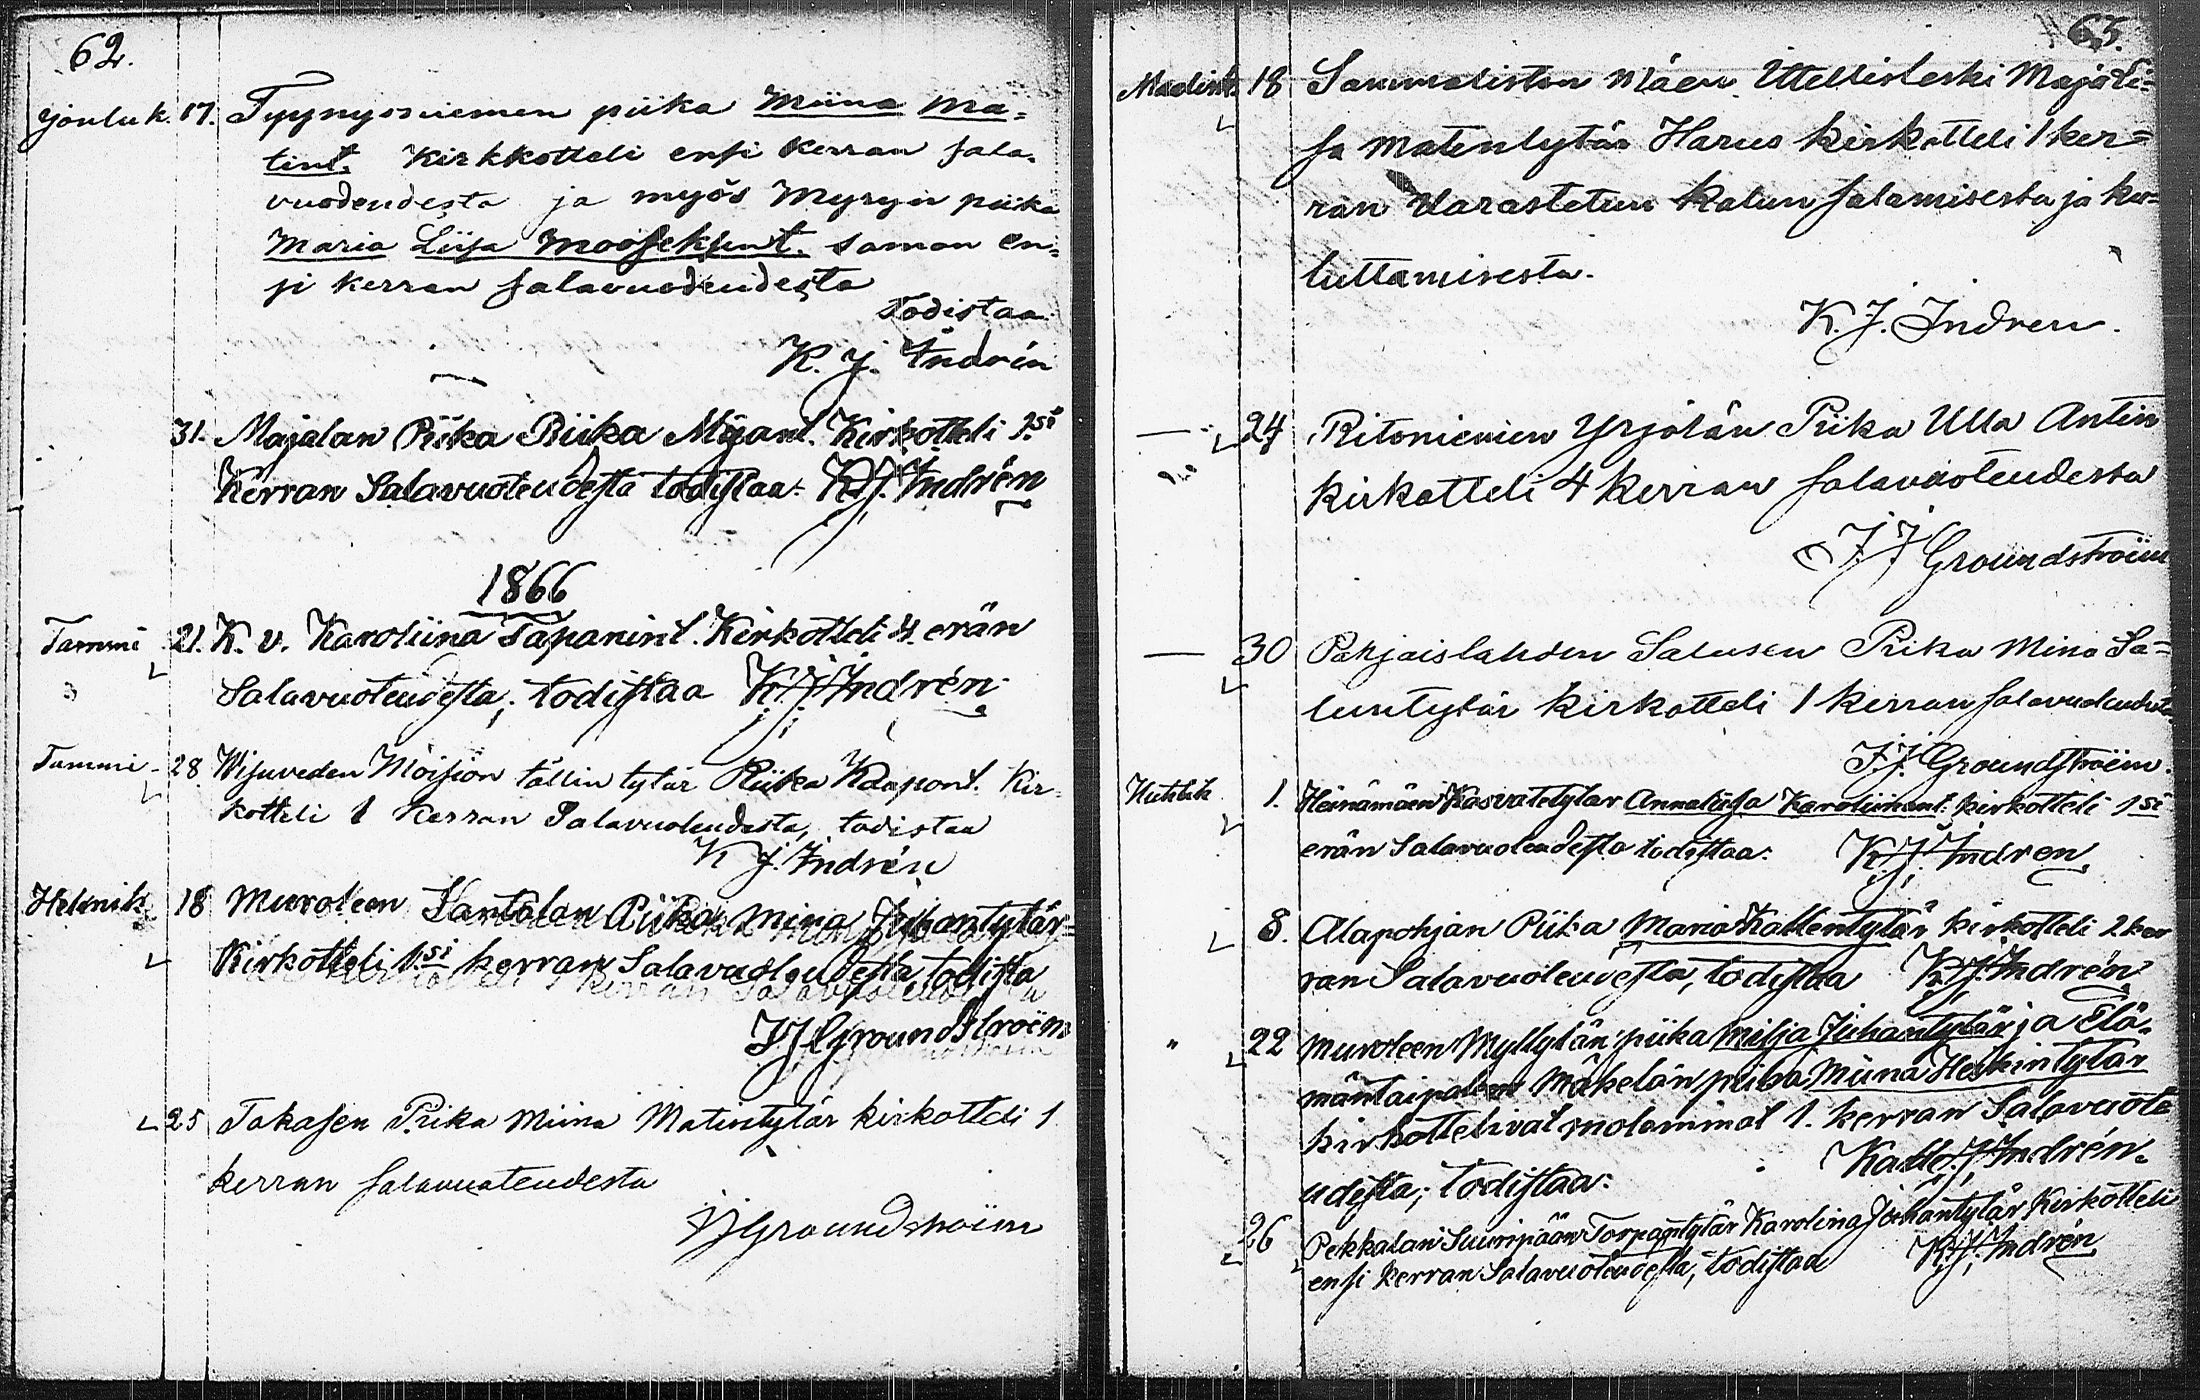 62.
Jouluk. 17. Typpyssniemen piika Miina Ma-
tint. Kirkkotteli ensi Kerran sala-
vuodendesta ja myös Myryn piika
Maria Liisa Mooseksent. saman en-
si kerran salavuodeudesta
Todistaa
K. J. Indrén
31. Majalan Piika Riika Kirkotteli 1.si
Kerran Salavuoteudesta todistaa. K.J. Indrén
1866
Tammi 21. K. v. Karoliina Tapanint. Kirkotteli 4. erän
Salavuoteudesta; todistaa K.J. Indrén
Tammi - 28. Wisuveden Möision tällin tytär Riika Kaapont. Kir-
kotteli 1 Kerran Salavuoteudesta, todistaa
K J. Indrén
Helmik 18 Muroleen Santalan Piika Mina Juhantytär
Kirkotteli 1.si kerran Salavuoteudesta todista
JJGroundstroëm
25 Takasen Piika Miina Matintytär kirkotteli 1
kerran salavuoteudesta
JJGroundstroëm
63.
Maalisk. 18 Sammaliston Mäen Ittellisleski Maja Li-
sa Matentytär Harus kirkotteli 1 ker-
ran Varastetun kalun salamisesta ja ku-
luttamisesta.
K. J. Indren.
— 24 Ritoniemen Yrjölän Piika Ulla Antin
kirkotteli 4 Kerran salavuoteudesta
J J Groundstroëm
— 30 Pohjaislahden Salusen Piika Mina Sa-
luntytär kirkotteli 1 kerran salavuoteudesta
J. J. Groundstroëm.
Huhtik 1. Heinämäen Kasvatetytar Annaliisa Karoliinant. kirkotteli 1si
erän Salavuoteudesta todistaa: K.J. Indren
8. Alapohjan Piika Maria Kallentytär kirkotteli 2 ker
ran Salavuoteudesta, todistaa K.J. Indrén
" 22 Muroleen Myllylän piika Milja Juhantytär ja Elä-
mäntaipaleen Mäkelän piika Miina Heskintytär
kirkottelivat molemmat 1. kerran Salavuote
udesta; todistaa: Kalle J. Indrén.
26 Pekkalan Suuripään Torpantytär Karolina Johantytär Kirkotteli
ensi kerran Salavuoteudesta, todistaa K.J. Indrén